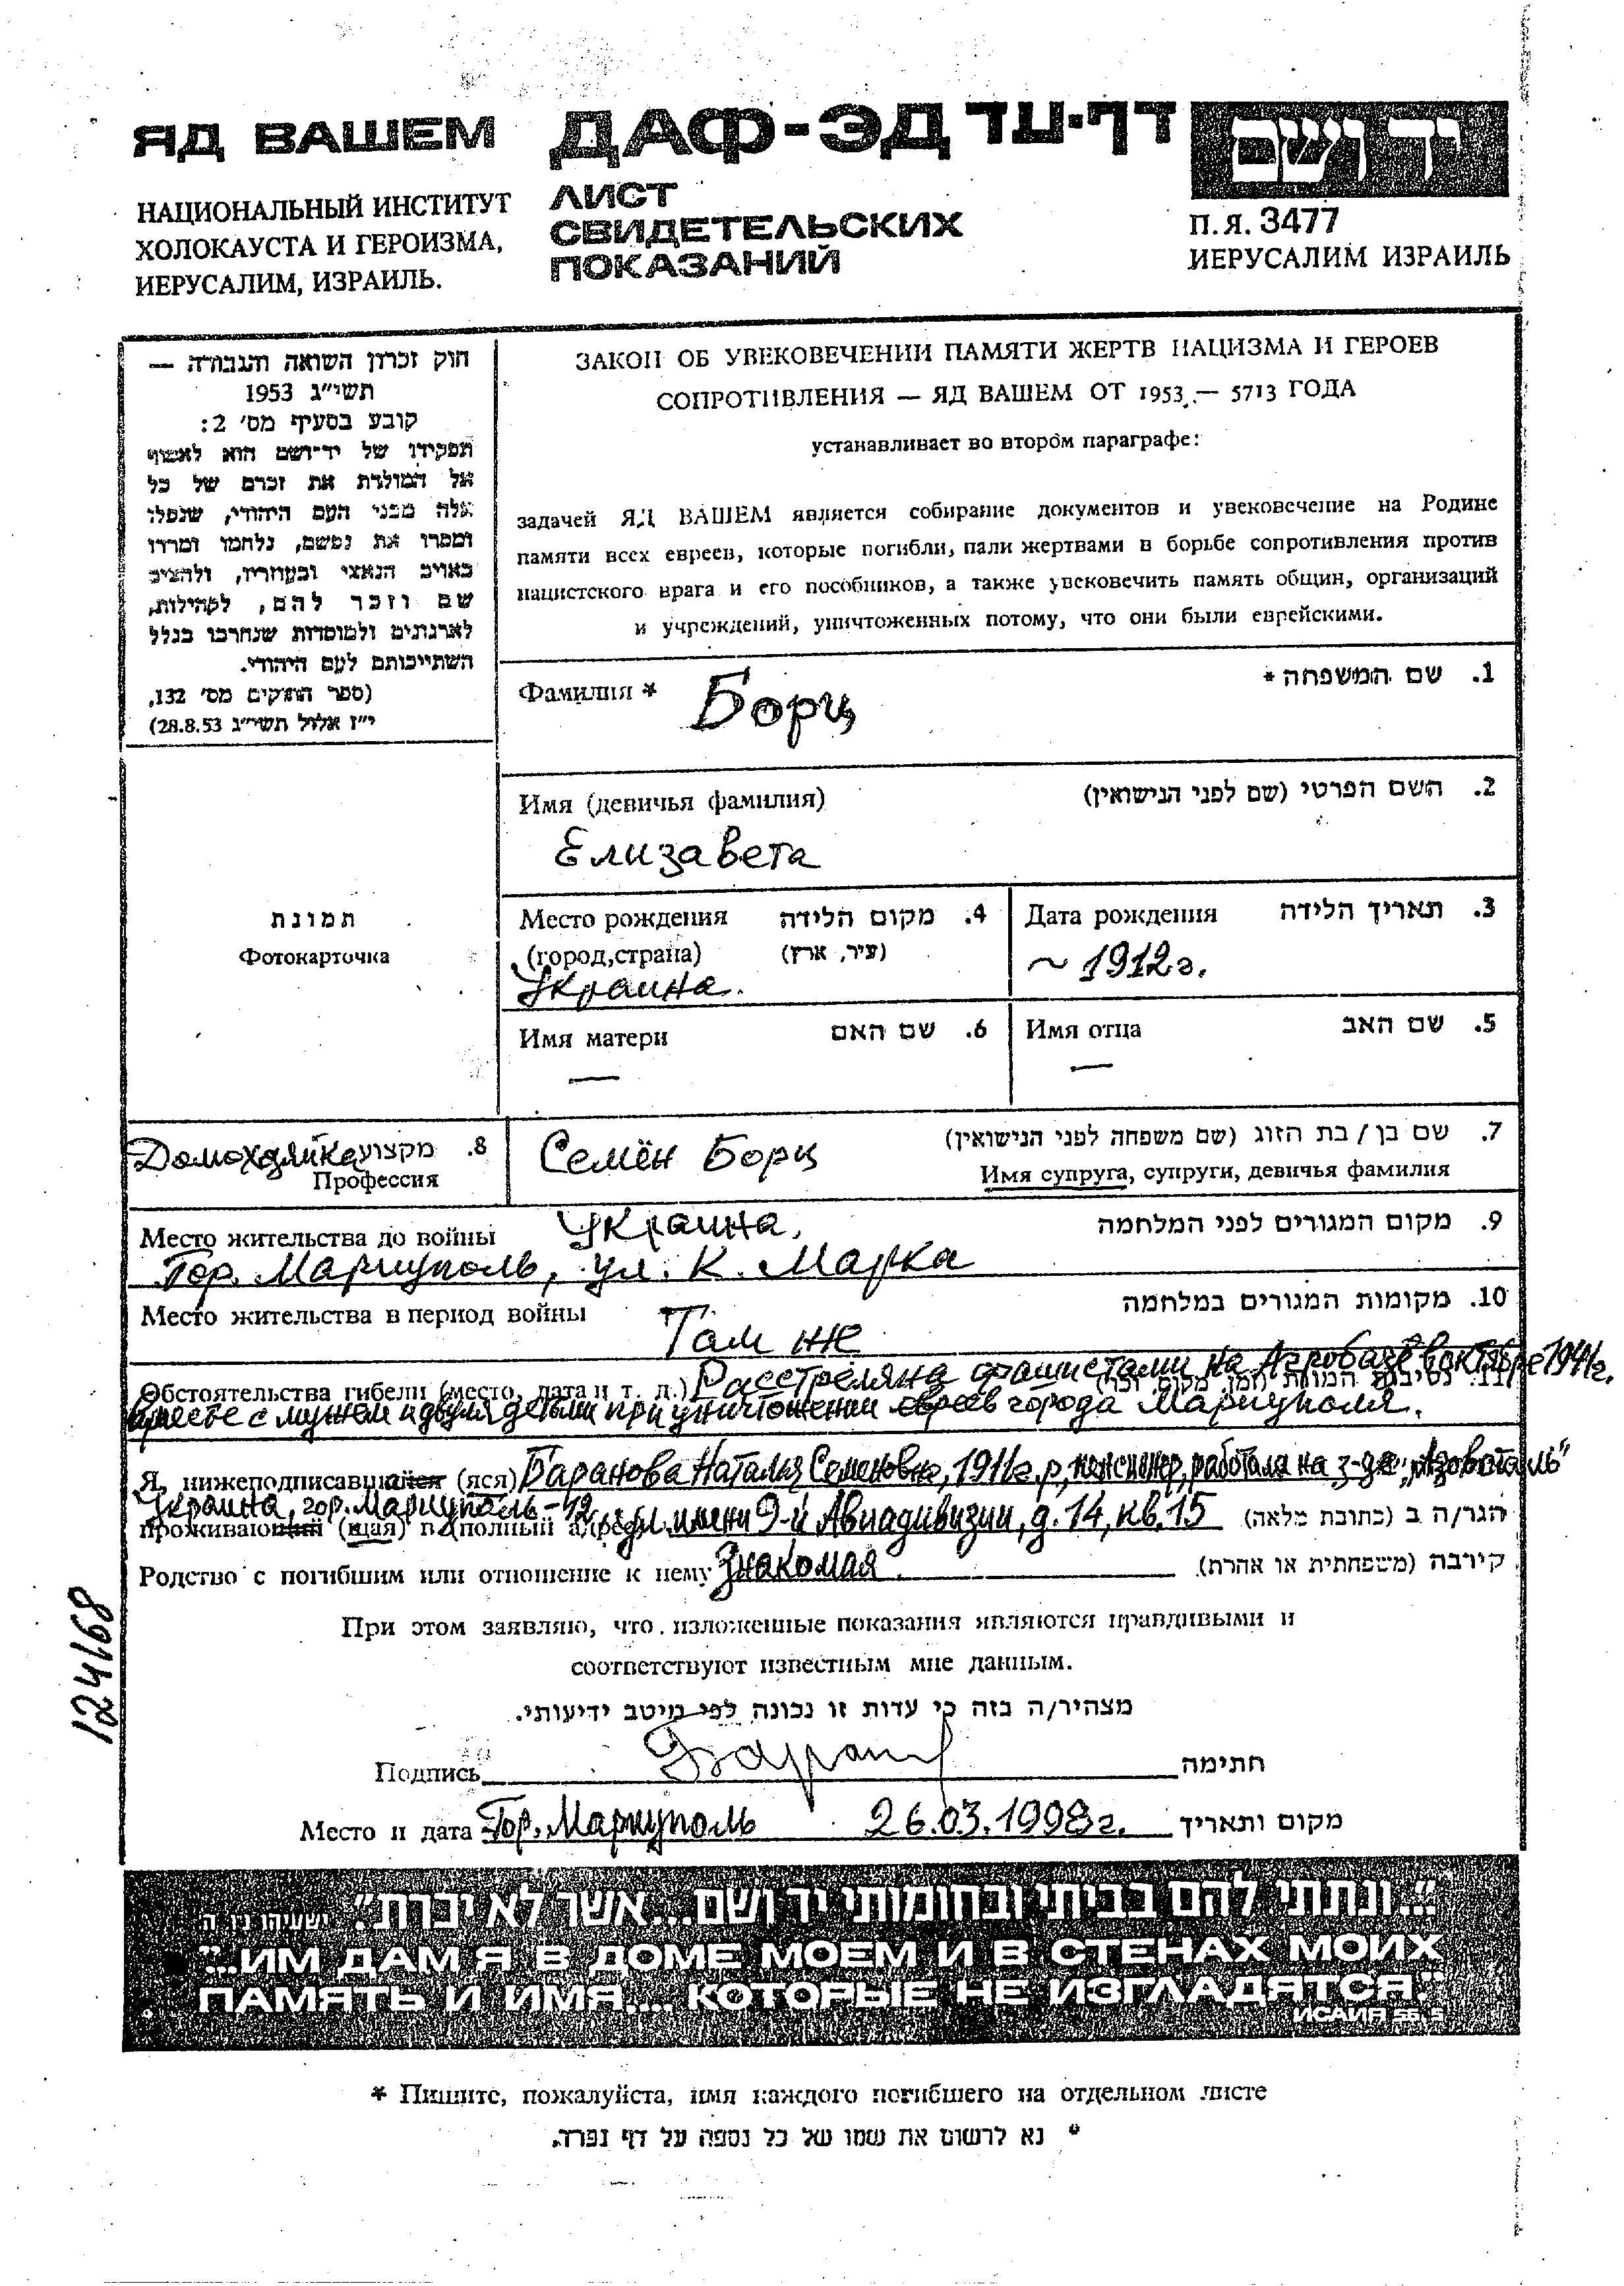 ЯД ВАШЕМ
НАЦИОНАЛЬНЫЙ ИНСТИТУТ
ХОЛОКАУСТА И ГЕРОИЗМА,
ИЕРУСАЛИМ, ИЗРАИЛЬ.
ДАФ-ЭД דף-עד
ЛИСТ
СВИДЕТЕЛЬСКИХ
ПОКАЗАНИЙ
יד ושם
П.Я. 3477
ИЕРУСАЛИМ ИЗРАИЛЬ
חוק זכרון השואה והגבורה —
תשי"ג 1953
קובע בסעיף מס' 2:
תפקידו של יד-ושם הוא לאסוף
אל המולדת את זכרם של כל
אלה מבני העם היהודי, שנפלו
ומסרו את נפשם, נלחמו ומרדו
באויב הנאצי ובעוזריו, ולהציב
שם וזכר להם, לקהילות,
לארגונים ולמוסדות שנחרבו בגלל
השתייכותם לעם היהודי.
(ספר החוקים מס' 132,
י"ז אלול תשי"ג 28.8.53)
ЗАКОН ОБ УВЕКОВЕЧЕНИИ ПАМЯТИ ЖЕРТВ НАЦИЗМА И ГЕРОЕВ
СОПРОТИВЛЕНИЯ — ЯД ВАШЕМ ОТ 1953 — 5713 ГОДА
устанавливает во втором параграфе:
задачей ЯД ВАШЕМ является собирание документов и увековечение на Родине
памяти всех евреев, которые погибли, пали жертвами в борьбе сопротивления против
нацистского врага и его пособников, а также увековечить память общин, организаций
и учреждений, уничтоженных потому, что они были еврейскими.
Фамилия * Борц 1. שם המשפחה *
Имя (девичья фамилия) 2. השם הפרטי (שם לפני הנישואין)
Елизавета
תמונת
Фотокарточка
Место рождения 4. מקום הלידה
(город,страна) (עיר, ארץ)
Украина.
Дата рождения 3. תאריך הלידה
~ 1912г.
Имя матери 6. שם האם
—
Имя отца 5. שם האב
—
Домохозяйка 8. מקצוע
Профессия
Семён Борц 7. שם בן / בת הזוג (שם משפחה לפני הנישואין)
Имя супруга, супруги, девичья фамилия
Место жительства до войны Украина, 9. מקום המגורים לפני המלחמה
Гор. Мариуполь, ул. К. Маркa
Место жительства в период войны Там же 10. מקומות המגורים במלחמה
Обстоятельства гибели (место, дата и т. д.) Расстреляна фашистами на Агробазе в октябре 1941г. 11. נסיבות המוות (זמן, מקום וכו')
вместе с мужем и двумя детьми при уничтожении евреев города Мариуполя.
Я, нижеподписавшийся (яся) Баранова Наталья Семеновна, 1911г.р, пенсионер, работала на з-де "Азовсталь"
Украина, гор. Мариуполь-12, ул. имени 9-й Авиадивизии, д. 14, кв. 15
проживающий (щая) в (полный адрес) הגר/ה ב (כתובת מלאה)
Родство с погибшим или отношение к нему Знакомая. קירבה (משפחתית או אחרת)
При этом заявляю, что изложенные показания являются правдивыми и
соответствуют известным мне данным.
מצהיר/ה בזה כי עדות זו נכונה לפי מיטב ידיעותי.
Подпись חתימה
Место и дата Гор. Мариуполь 26.03.1998г. מקום ותאריך
124168
"...ונתתי להם בביתי ובחומותי יד ושם....אשר לא יכרת". ישעיהו נו, ה
"...ИМ ДАМ Я В ДОМЕ МОЕМ И В СТЕНАХ МОИХ
ПАМЯТЬ И ИМЯ.... КОТОРЫЕ НЕ ИЗГЛАДЯТСЯ."
ИСАИЯ 56, 5
* Пишите, пожалуйста, имя каждого погибшего на отдельном листе
* נא לרשום את שמו של כל נספה על דף נפרד.